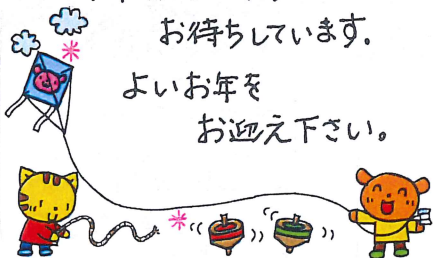 お待ちしています。
よいお年を
お迎え下さい。